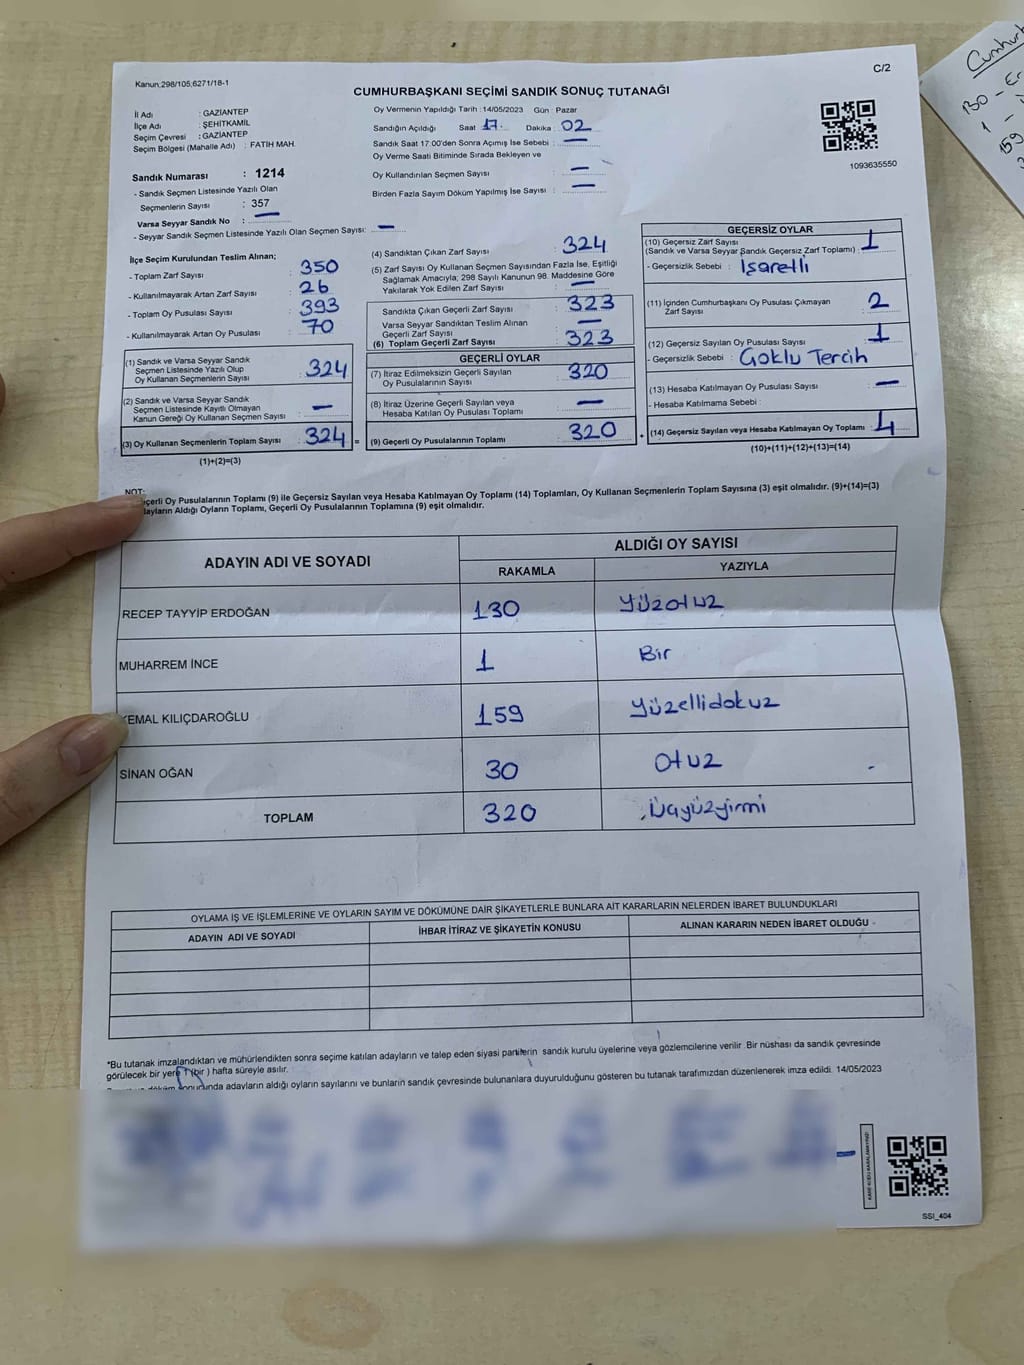 Kanun:298/105;6271/18-1
C/2
CUMHURBAŞKANI SEÇİMİ SANDIK SONUÇ TUTANAĞI
İl Adı : GAZİANTEP
İlçe Adı : ŞEHİTKAMİL
Seçim Çevresi : GAZİANTEP
Seçim Bölgesi (Mahalle Adı) : FATİH MAH.
Sandık Numarası : 1214
- Sandık Seçmen Listesinde Yazılı Olan
Seçmenlerin Sayısı : 357
Varsa Seyyar Sandık No : —
- Seyyar Sandık Seçmen Listesinde Yazılı Olan Seçmen Sayısı: —
Oy Vermenin Yapıldığı Tarih : 14/05/2023 Gün : Pazar
Sandığın Açıldığı Saat 17. Dakika : 02
Sandık Saat 17:00'den Sonra Açımış İse Sebebi : —
Oy Verme Saati Bitiminde Sırada Bekleyen ve
Oy Kullandırılan Seçmen Sayısı : —
Birden Fazla Sayım Döküm Yapılmış İse Sayısı : —
1093635550
İlçe Seçim Kurulundan Teslim Alınan;
- Toplam Zarf Sayısı : 350
- Kullanılmayarak Artan Zarf Sayısı : 26
- Toplam Oy Pusulası Sayısı : 393
- Kullanılmayarak Artan Oy Pusulası : 70
(1) Sandık ve Varsa Seyyar Sandık
Seçmen Listesinde Yazılı Olup
Oy Kullanan Seçmenlerin Sayısı : 324
(2) Sandık ve Varsa Seyyar Sandık
Seçmen Listesinde Kayıtlı Olmayan
Kanun Gereği Oy Kullanan Seçmen Sayısı : —
(3) Oy Kullanan Seçmenlerin Toplam Sayısı : 324 =
(1)+(2)=(3)
(4) Sandıktan Çıkan Zarf Sayısı : 324
(5) Zarf Sayısı Oy Kullanan Seçmen Sayısından Fazla İse, Eşitliği
Sağlamak Amacıyla; 298 Sayılı Kanunun 98. Maddesine Göre
Yakılarak Yok Edilen Zarf Sayısı : —
Sandıkta Çıkan Geçerli Zarf Sayısı : 323
Varsa Seyyar Sandıktan Teslim Alınan
Geçerli Zarf Sayısı : —
(6) Toplam Geçerli Zarf Sayısı : 323
GEÇERLİ OYLAR
(7) İtiraz Edilmeksizin Geçerli Sayılan
Oy Pusulalarının Sayısı : 320
(8) İtiraz Üzerine Geçerli Sayılan veya
Hesaba Katılan Oy Pusulası Toplamı : —
(9) Geçerli Oy Pusulalarının Toplamı : 320
GEÇERSİZ OYLAR
(10) Geçersiz Zarf Sayısı
(Sandık ve Varsa Seyyar Sandık Geçersiz Zarf Toplamı) : 1
- Geçersizlik Sebebi : İşaretli
(11) İçinden Cumhurbaşkanı Oy Pusulası Çıkmayan
Zarf Sayısı : 2
(12) Geçersiz Sayılan Oy Pusulası Sayısı : 1
- Geçersizlik Sebebi : Çoklu Tercih
(13) Hesaba Katılmayan Oy Pusulası Sayısı : —
- Hesaba Katılmama Sebebi :
(14) Geçersiz Sayılan veya Hesaba Katılmayan Oy Toplamı : 4
(10)+(11)+(12)+(13)=(14)
NOT:
Geçerli Oy Pusulalarının Toplamı (9) ile Geçersiz Sayılan veya Hesaba Katılmayan Oy Toplamı (14) Toplamları, Oy Kullanan Seçmenlerin Toplam Sayısına (3) eşit olmalıdır. (9)+(14)=(3)
Aldığı Oyların Toplamı, Geçerli Oy Pusulalarının Toplamına (9) eşit olmalıdır.
ADAYIN ADI VE SOYADI
ALDIĞI OY SAYISI
RAKAMLA YAZIYLA
RECEP TAYYİP ERDOĞAN 130 Yüzotuz
MUHARREM İNCE 1 Bir
KEMAL KILIÇDAROĞLU 159 Yüzellidokuz
SİNAN OĞAN 30 Otuz
TOPLAM 320 Üçyüzyirmi
OYLAMA İŞ VE İŞLEMLERİNE VE OYLARIN SAYIM VE DÖKÜMÜNE DAİR ŞİKAYETLERLE BUNLARA AİT KARARLARIN NELERDEN İBARET BULUNDUKLARI
ADAYIN ADI VE SOYADI
İHBAR İTİRAZ VE ŞİKAYETİN KONUSU
ALINAN KARARIN NEDEN İBARET OLDUĞU
*Bu tutanak imzalandıktan ve mühürlendikten sonra seçime katılan adayların ve talep eden siyasi partilerin sandık kurulu üyelerine veya gözlemcilerine verilir. Bir nüshası da sandık çevresinde
görülecek bir yere 1 (bir) hafta süreyle asılır.
döküm sonucunda adayların aldığı oyların sayılarını ve bunların sandık çevresinde bulunanlara duyurulduğunu gösteren bu tutanak tarafımızdan düzenlenerek imza edildi. 14/05/2023
SSI_404